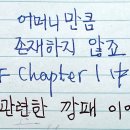 어머니만큼
존재하지 않죠
Chapter 1 中
관련한 깡패 이